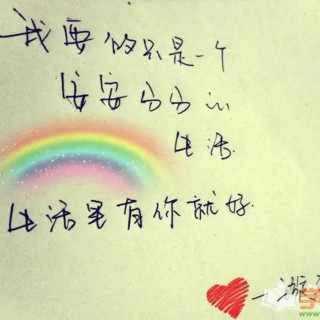 我要的只是一个
安安分分的
生活
生活里有你就好.